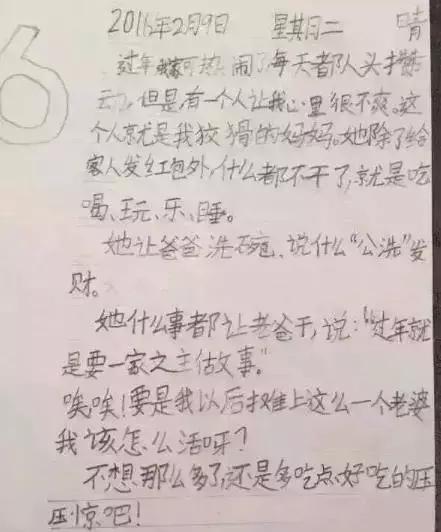 6
2016年2月9日 星期二 晴
过年我家可热闹了,每天都人头攒
动。但是,有一个人让我心里很不爽。这
个人就是我狡猾的妈妈。她除了给
客人发红包外,什么都不干了,就是吃
喝、玩、乐、睡。
她让爸爸洗碗、说什么“公洗”发
财。
她什么事都让老爸干,说:“过年就
是要一家之主做事。”
唉唉!要是我以后摊上这么一个老婆
我该怎么活呀?
不想那么多了,还是多吃点好吃的压
压惊吧!